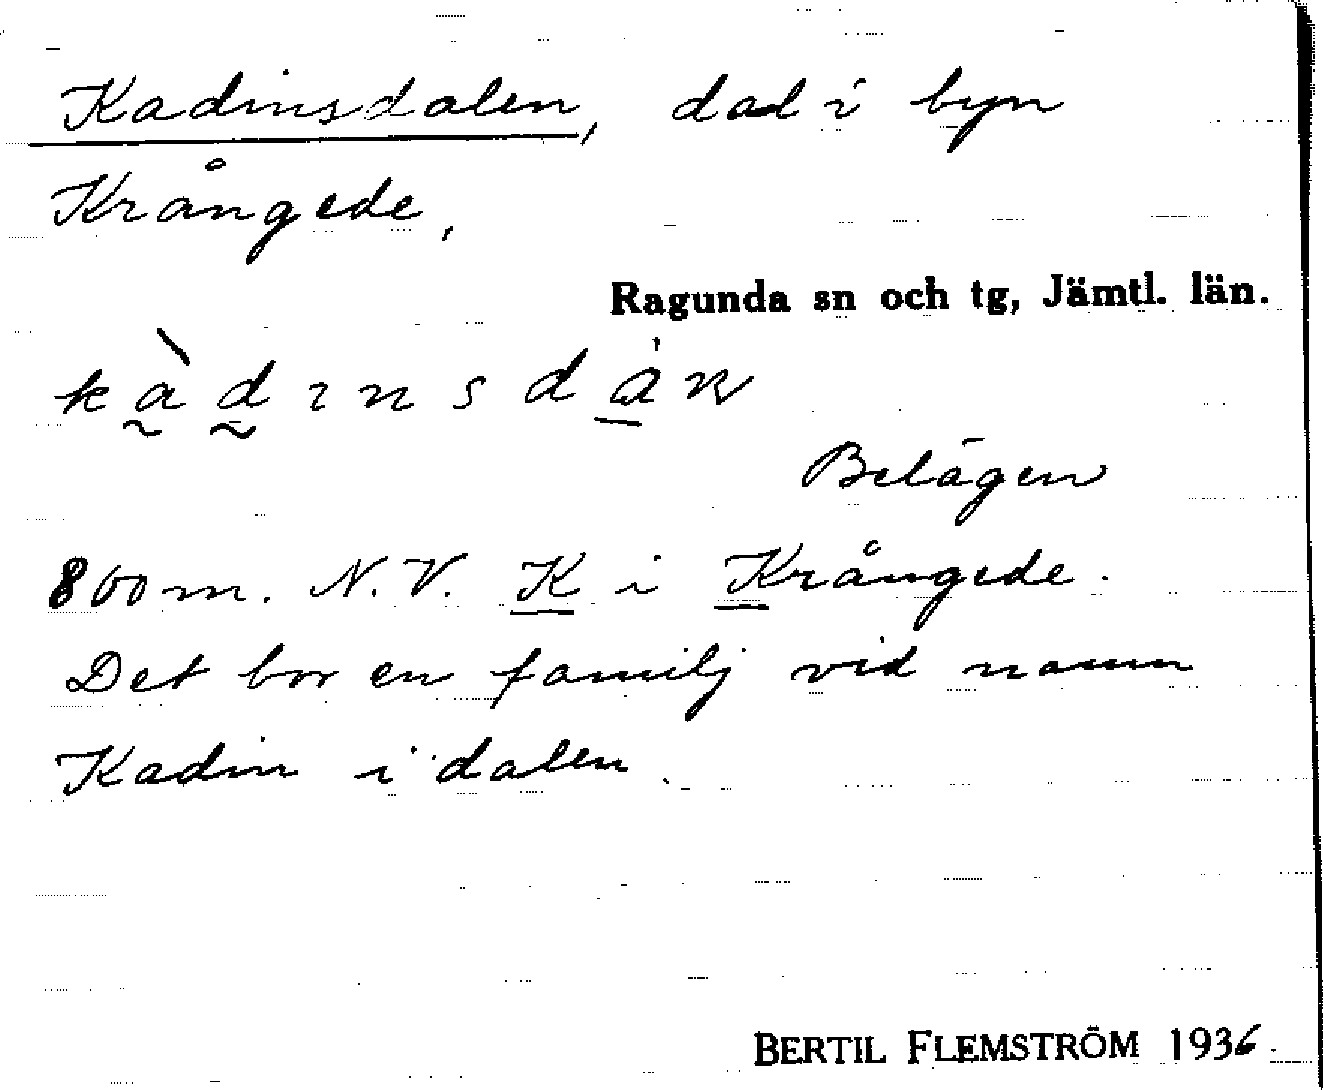 Kadinsdalen, dal i byn
Krångede,
Ragunda sn och tg, Jämtl. län.
Belägen
800 m. N.V. K i Krångede.
Det bor en familj vid namn
Kadin i dalen.
BERTIL FLEMSTRÖM 1936